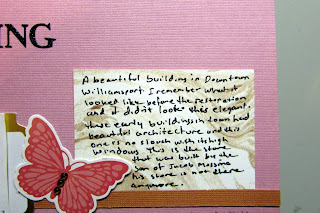 ING
A beautiful building in Downtown
Williamsport I remember what it
looked like before the restoration
and it didn't look this elegant.
These early buildings in town had
beautiful architecture and this
one is no slouch with its high
windows This is the store
that was built by the
son of Jacob
his store is not there
anymore.